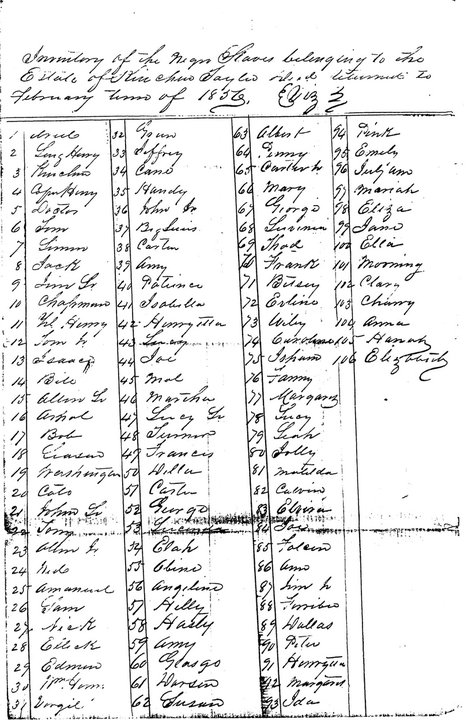 Inventory of the Negro Slaves belonging to the
Estate of Kinchen Taylor decd returned to
February term of 1856.
1
2 Henry
3 Kinchen
4 Henry
5 Doctor
6 Tom
7 Simon
8 Jack
9 Jim Sr
10 Chapman
11 Henry
12 Tom Jr
13 Isaac
14 Bill
15 Allen Sr
16
17 Bob
18 Eason
19 Washington
20 Cato
21 John Sr
22 Tony
23 Allen Jr
24 Ned
25 Amanuel
26 Sam
27 Nick
28
29 Edmun
30 Wm
31 Virgil
32
33 Jeffrey
34 Cane
35 Handy
36 John Jr
37 Big Luis
38 Carter
39 Amy
40 Patience
41 Isabella
42 Henrytta
43
44 Joe
45 Mol
46 Martha
47 Lucy Sr
48 Turner
49 Francis
50 Willie
51 Carter
52 George
53
54
55
56 Angeline
57 Hilly
58 Harty
59 Amy
60 Glasgo
61
62 Susan
63 Albert
64 Penny
65 Carter Jr
66 Mary
67 George
68
69 Thod
70 Frank
71 Bitsey
72 Evline
73 Wiley
74 Caroline
75 Isham
76 Fanny
77 Margaret
78 Lucy
79 Leah
80 Jolly
81 Matilda
82 Calvin
83 Elvira
84 Joe
85
86 Ann
87 Jim Jr
88
89 Wallas
90 Peter
91 Henrytta
92 Margaret
93 Ida
94 Pink
95 Emily
96
97 Mariah
98 Eliza
99 Jane
100 Ella
101 Morning
102 Clary
103 Cherry
104 Anna
105 Hanah
106 Elizabeth